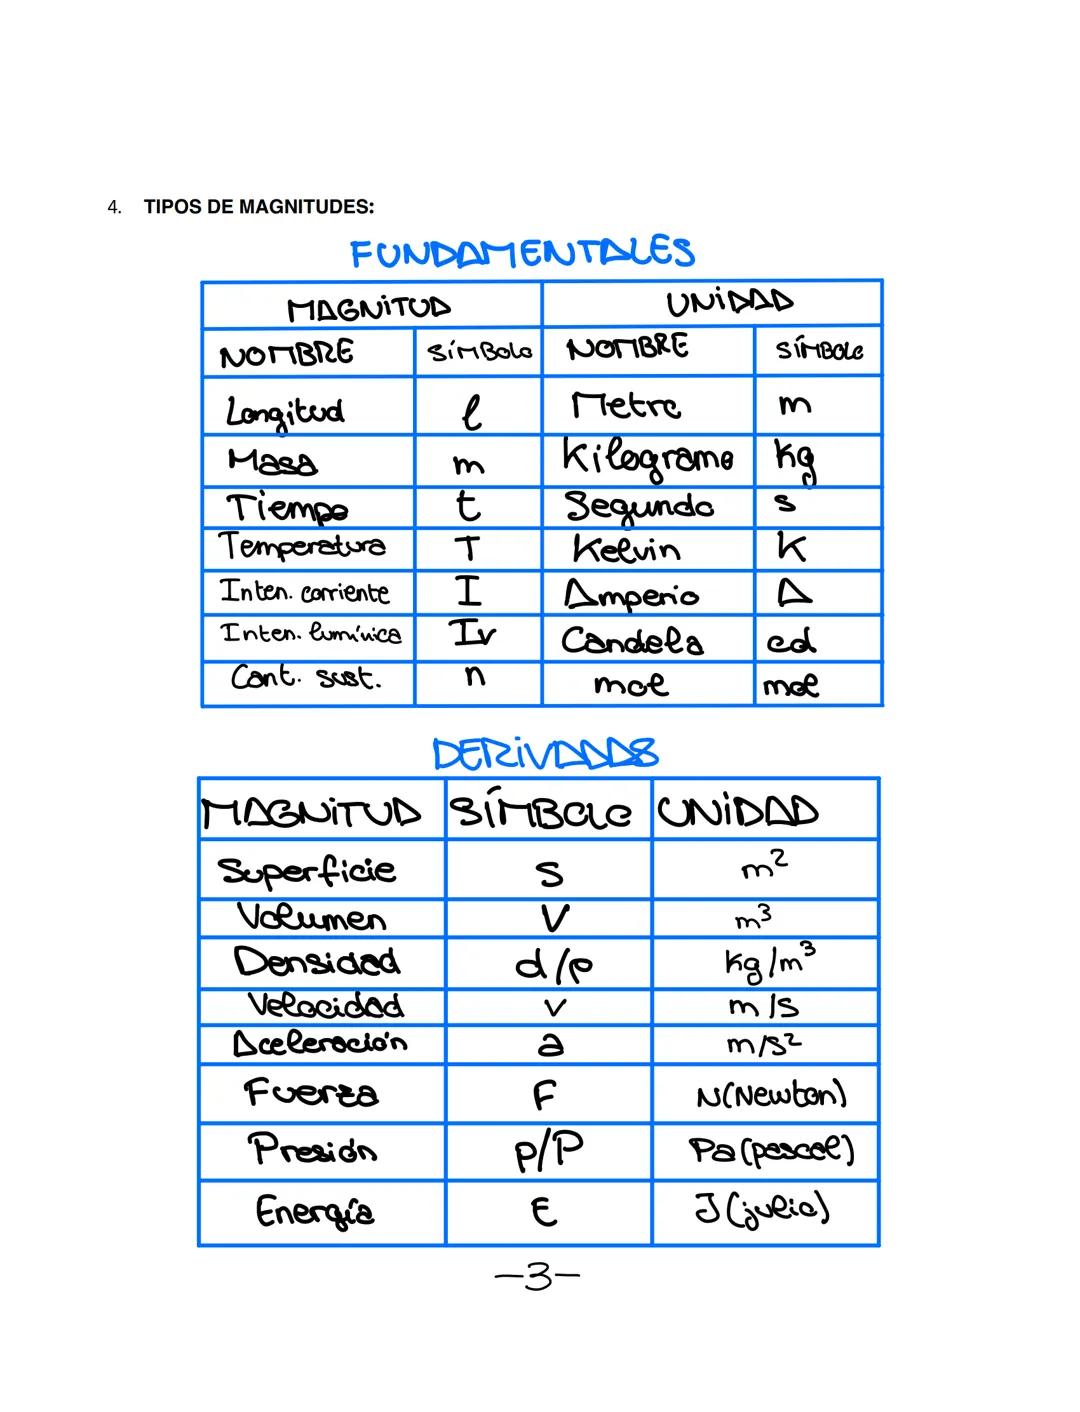 4. TIPOS DE MAGNITUDES:
FUNDAMENTALES
MAGNITUD UNIDAD
NOMBRE SÍMBOLO NOMBRE SÍMBOLO
Longitud l Metro m
Masa m Kilogramo kg
Tiempo t Segundo s
Temperatura T Kelvin K
Inten. corriente I Amperio A
Inten. lumínica Iv Candela cd
Cant. sust. n mol mol
DERIVADAS
MAGNITUD SÍMBOLO UNIDAD
Superficie S m²
Volumen V m³
Densidad d/ρ kg/m³
Velocidad v m/s
Aceleración a m/s²
Fuerza F N(Newton)
Presión p/P Pa(pascal)
Energía E J(julio)
-3-